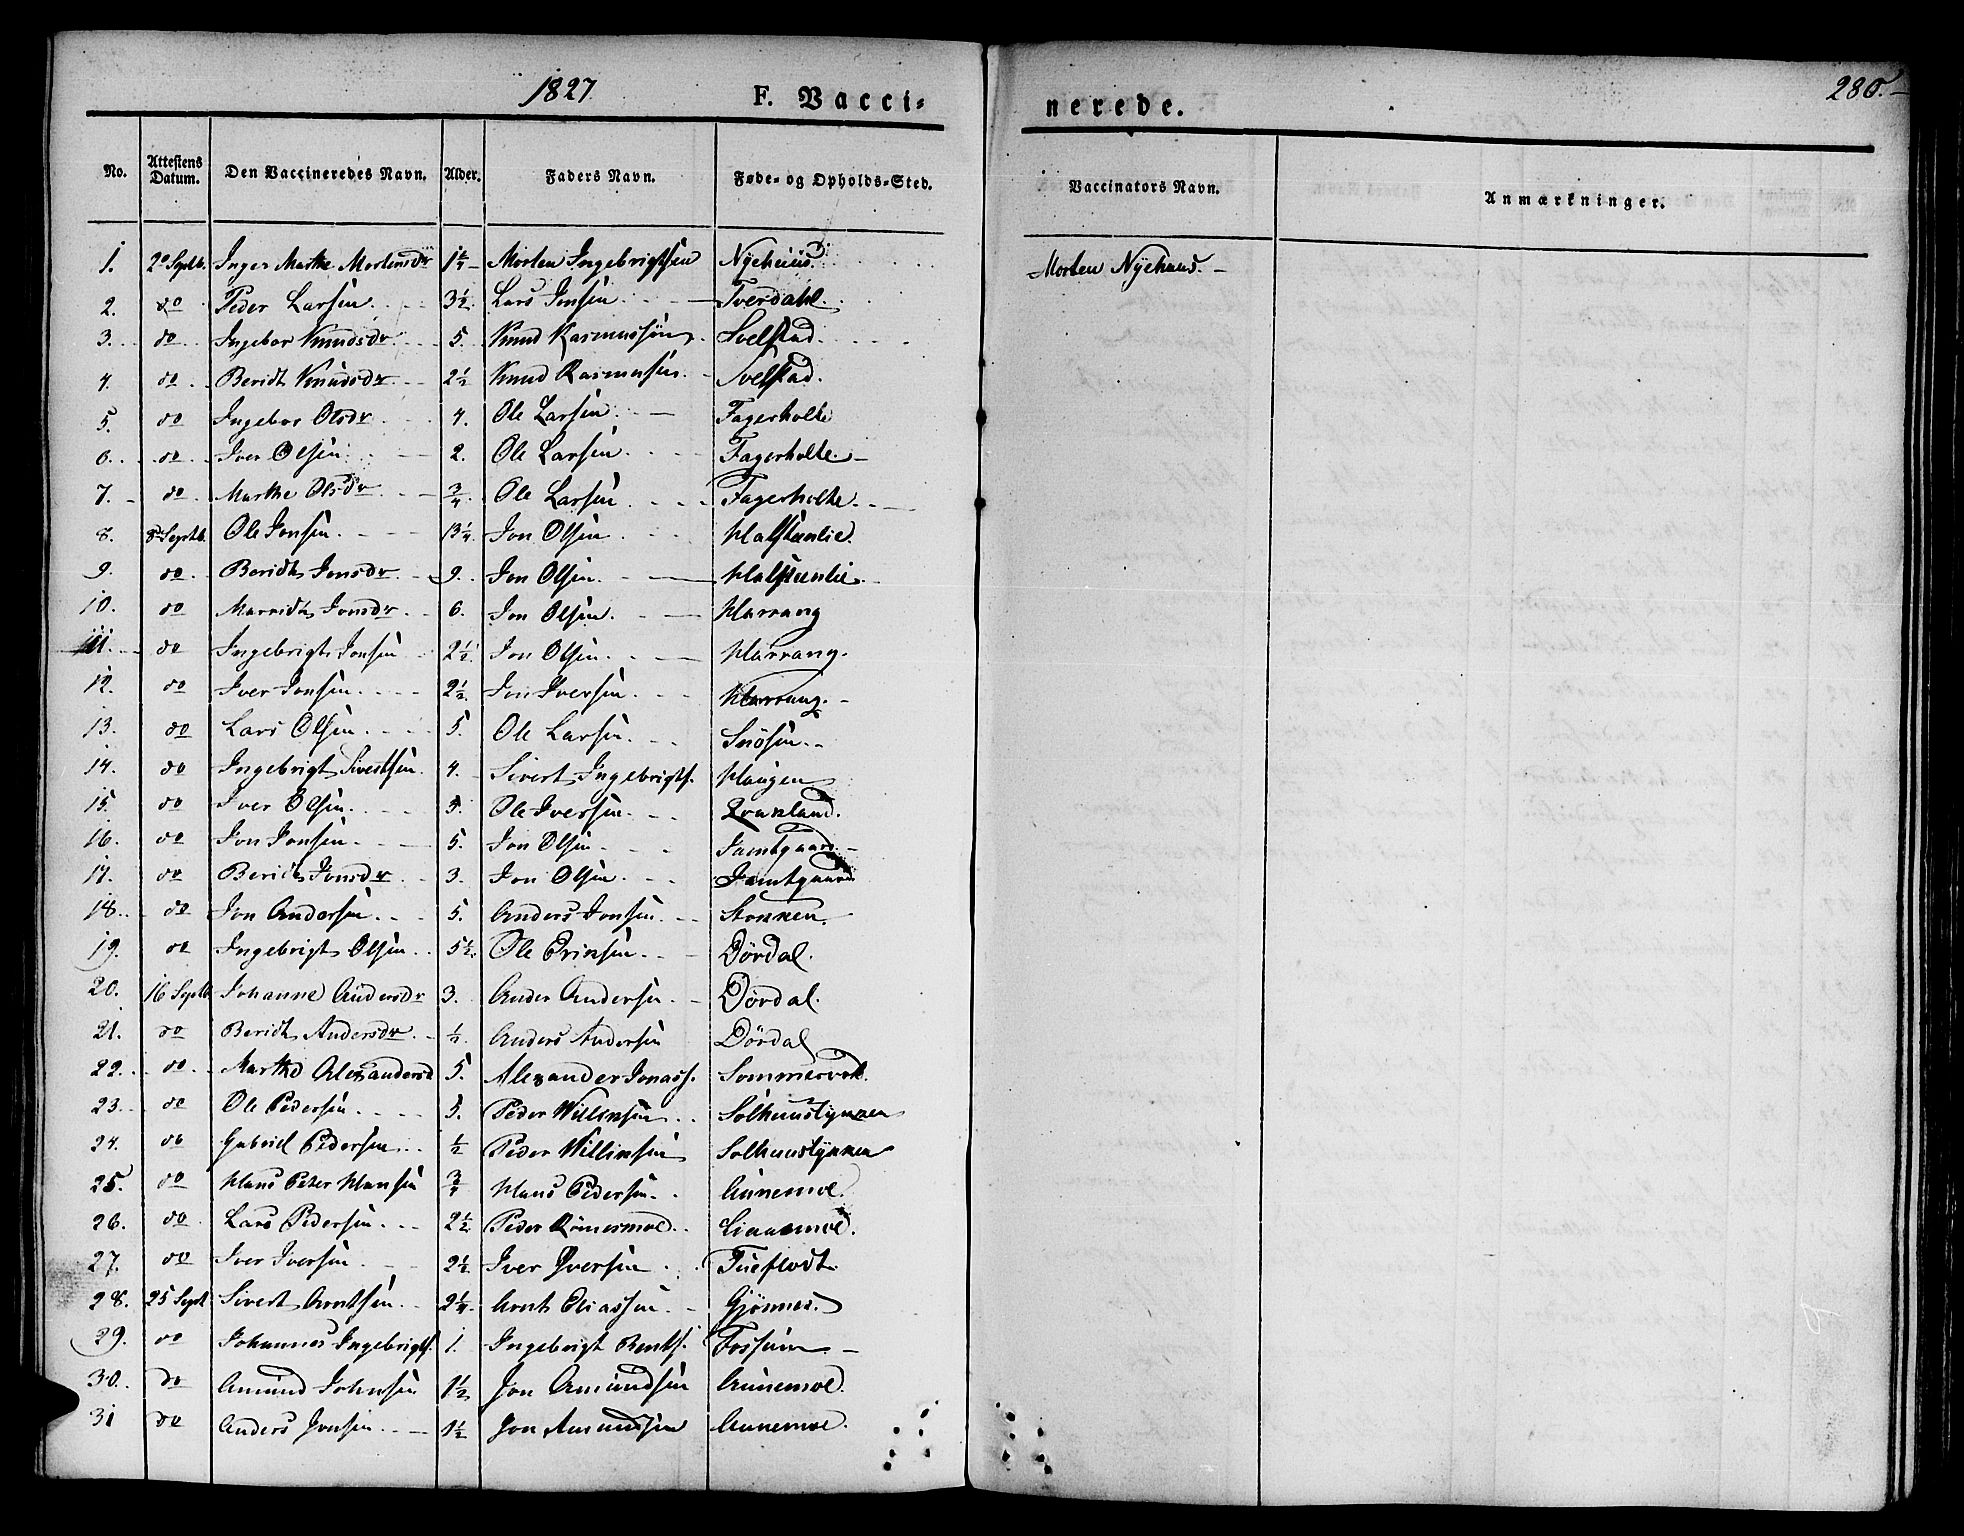 1827
F. Vacci-
nerede.
280.
No. Attestens Datum. Den Vaccineredes Navn. Alder. Faders Navn. Føde- og Opholds-Sted. Vaccinators Navn. Anmærkninger.
1. 2 Septb. Inger Marthe Mortensdr Morten Ingebrigtsen Nyehuus. Morten Nyehuus.
2. do Peder Larsen 3½. Lars Jonsen Tverdahl.
3. do Ingebor Knudsdr 5. Knud Rasmussen Svelstad.
4. do Beridt Knudsdr 2½ Knud Rasmusen Svelstad.
5. do Ingebor Olsdr 4. Ole Larsen Fagerholte
6. do Iver Olsen 2. Ole Larsen Fagerholte
7. do Marthe Olsdr ¾. Ole Larsen Fagerholte
8. 8 Septb. Ole Jonsen 13¼. Jon Olsen Halstenlie.
9. do Beridt Jonsdr 9. Jon Olsen Halstenlie.
10. do Marridt Jonsdr 6. Jon Olsen Harrang
11. do Ingebrigt Jonsen 2½. Jon Olsen Harrang.
12. do Iver Jonsen 2½. Jon Iversen Harrang.
13. do Lars Olsen 5. Ole Larsen Snösen.
14. do Ingebrigt Sivertsen 4. Sivert Ingebrigts. Haugen
15. do Iver Olsen 5. Ole Iversen Qvanland.
16. do Jon Jonsen 5. Jon Olsen Jamtgaard.
17. do Beridt Jonsdr 3. Jon Olsen Jamtgaard
18. do Jon Andersen 5. Anders Jonsen
19. do Ingebrigt Olsen 5½. Ole Erinsen Dördal.
20. 16 Septb Johanne Andersdr 3. Ander Andersen Dördal.
21. do Beridt Andersdr ½. Anders Andersen Dördal
22. do Marthe Alexandersd 5. Alexander Jonass.
23. do Ole Pedersen 5. Peder Willinsen Solhuustynnen
24. do Gabriel Pedersen ½ Peder Willinsen Solhuustynnen
25. do Hans Peter Hansen ¾ Hans Pedersen Aunemoe.
26. do Lars Pedersen 2½. Peder
27. do Iver Iversen 2½. Iver Yversen Tueflodt.
28. 25 Sept Sivert Arntsen 2¼. Arnt Eliassen Gjönnes.
29. do Johannes Ingebrigts. 1. Ingebrigt Bents. Fossum
30. do Amund Johnsen 1½ Jon Amundsen Aunemoe.
31 do Anders Jonsen 1½ Jon Amundsen Aunemoe.